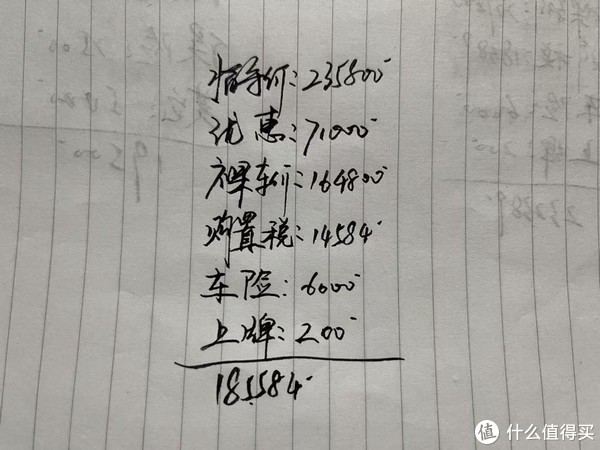 指导价:235800
优惠:71000
裸车价:164800
购置税:14584
车险:6000
上牌:200
185584
值 什么值得买